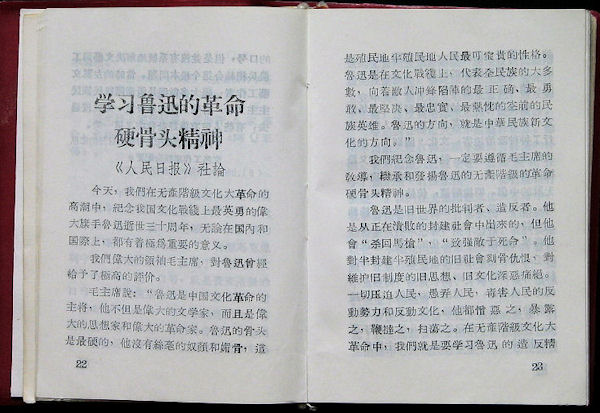 学习鲁迅的革命
硬骨头精神
《人民日报》社論
今天，我們在无產階級文化大革命的
高潮中，紀念我国文化戰綫上最英勇的偉
大旗手鲁迅逝世三十周年，无論在国內和
国際上，都有着極爲重要的意义。
我們偉大的領袖毛主席，對鲁迅曾經
給予了極高的評价。
毛主席說：“鲁迅是中国文化革命的
主将，他不但是偉大的文学家，而且是偉
大的思想家和偉大的革命家。鲁迅的骨头
是最硬的，他沒有絲毫的奴顏和媚骨，這
22
是殖民地半殖民地人民最可宝貴的性格。
鲁迅是在文化戰綫上，代表全民族的大多
數，向着敵人冲鋒陷陣的最正确、最勇
敢、最坚决、最忠實、最熱忱的空前的民
族英雄。鲁迅的方向，就是中華民族新文
化的方向。”
我們紀念鲁迅，一定要遵循毛主席的
敎導，繼承和發揚鲁迅的无產階級的革命
硬骨头精神。
鲁迅是旧世界的批判者、造反者。他
是从正在潰敗的封建社會中出來的，但他
會“杀回馬槍”，“致强敵于死命”。他
對半封建半殖民地的旧社會刻骨仇恨，對
維护旧制度的旧思想、旧文化深惡痛絕。
一切压迫人民，愚弄人民，毒害人民的反
動勢力和反動文化，他都憎惡之，暴露
之，鞭撻之，扫蕩之。在无產階級文化大
革命中，我們就是要学习鲁迅的造反精
23